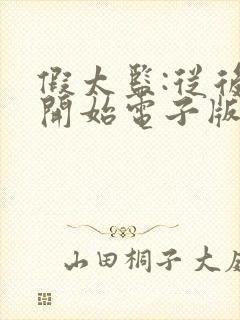 假太監:從後
開始電子版
山田桐子大